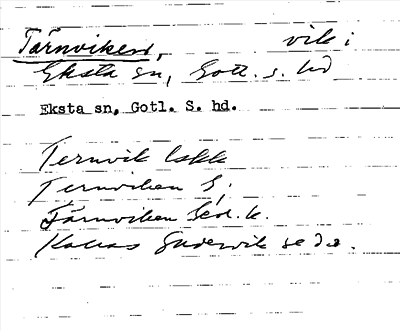 Tärnviken, vik i
Eksta sn, Gotl. s. hd
Eksta sn, Gotl. S. hd.
Ternvik
Ternviken
Tärnviken
Kallas se d. o.